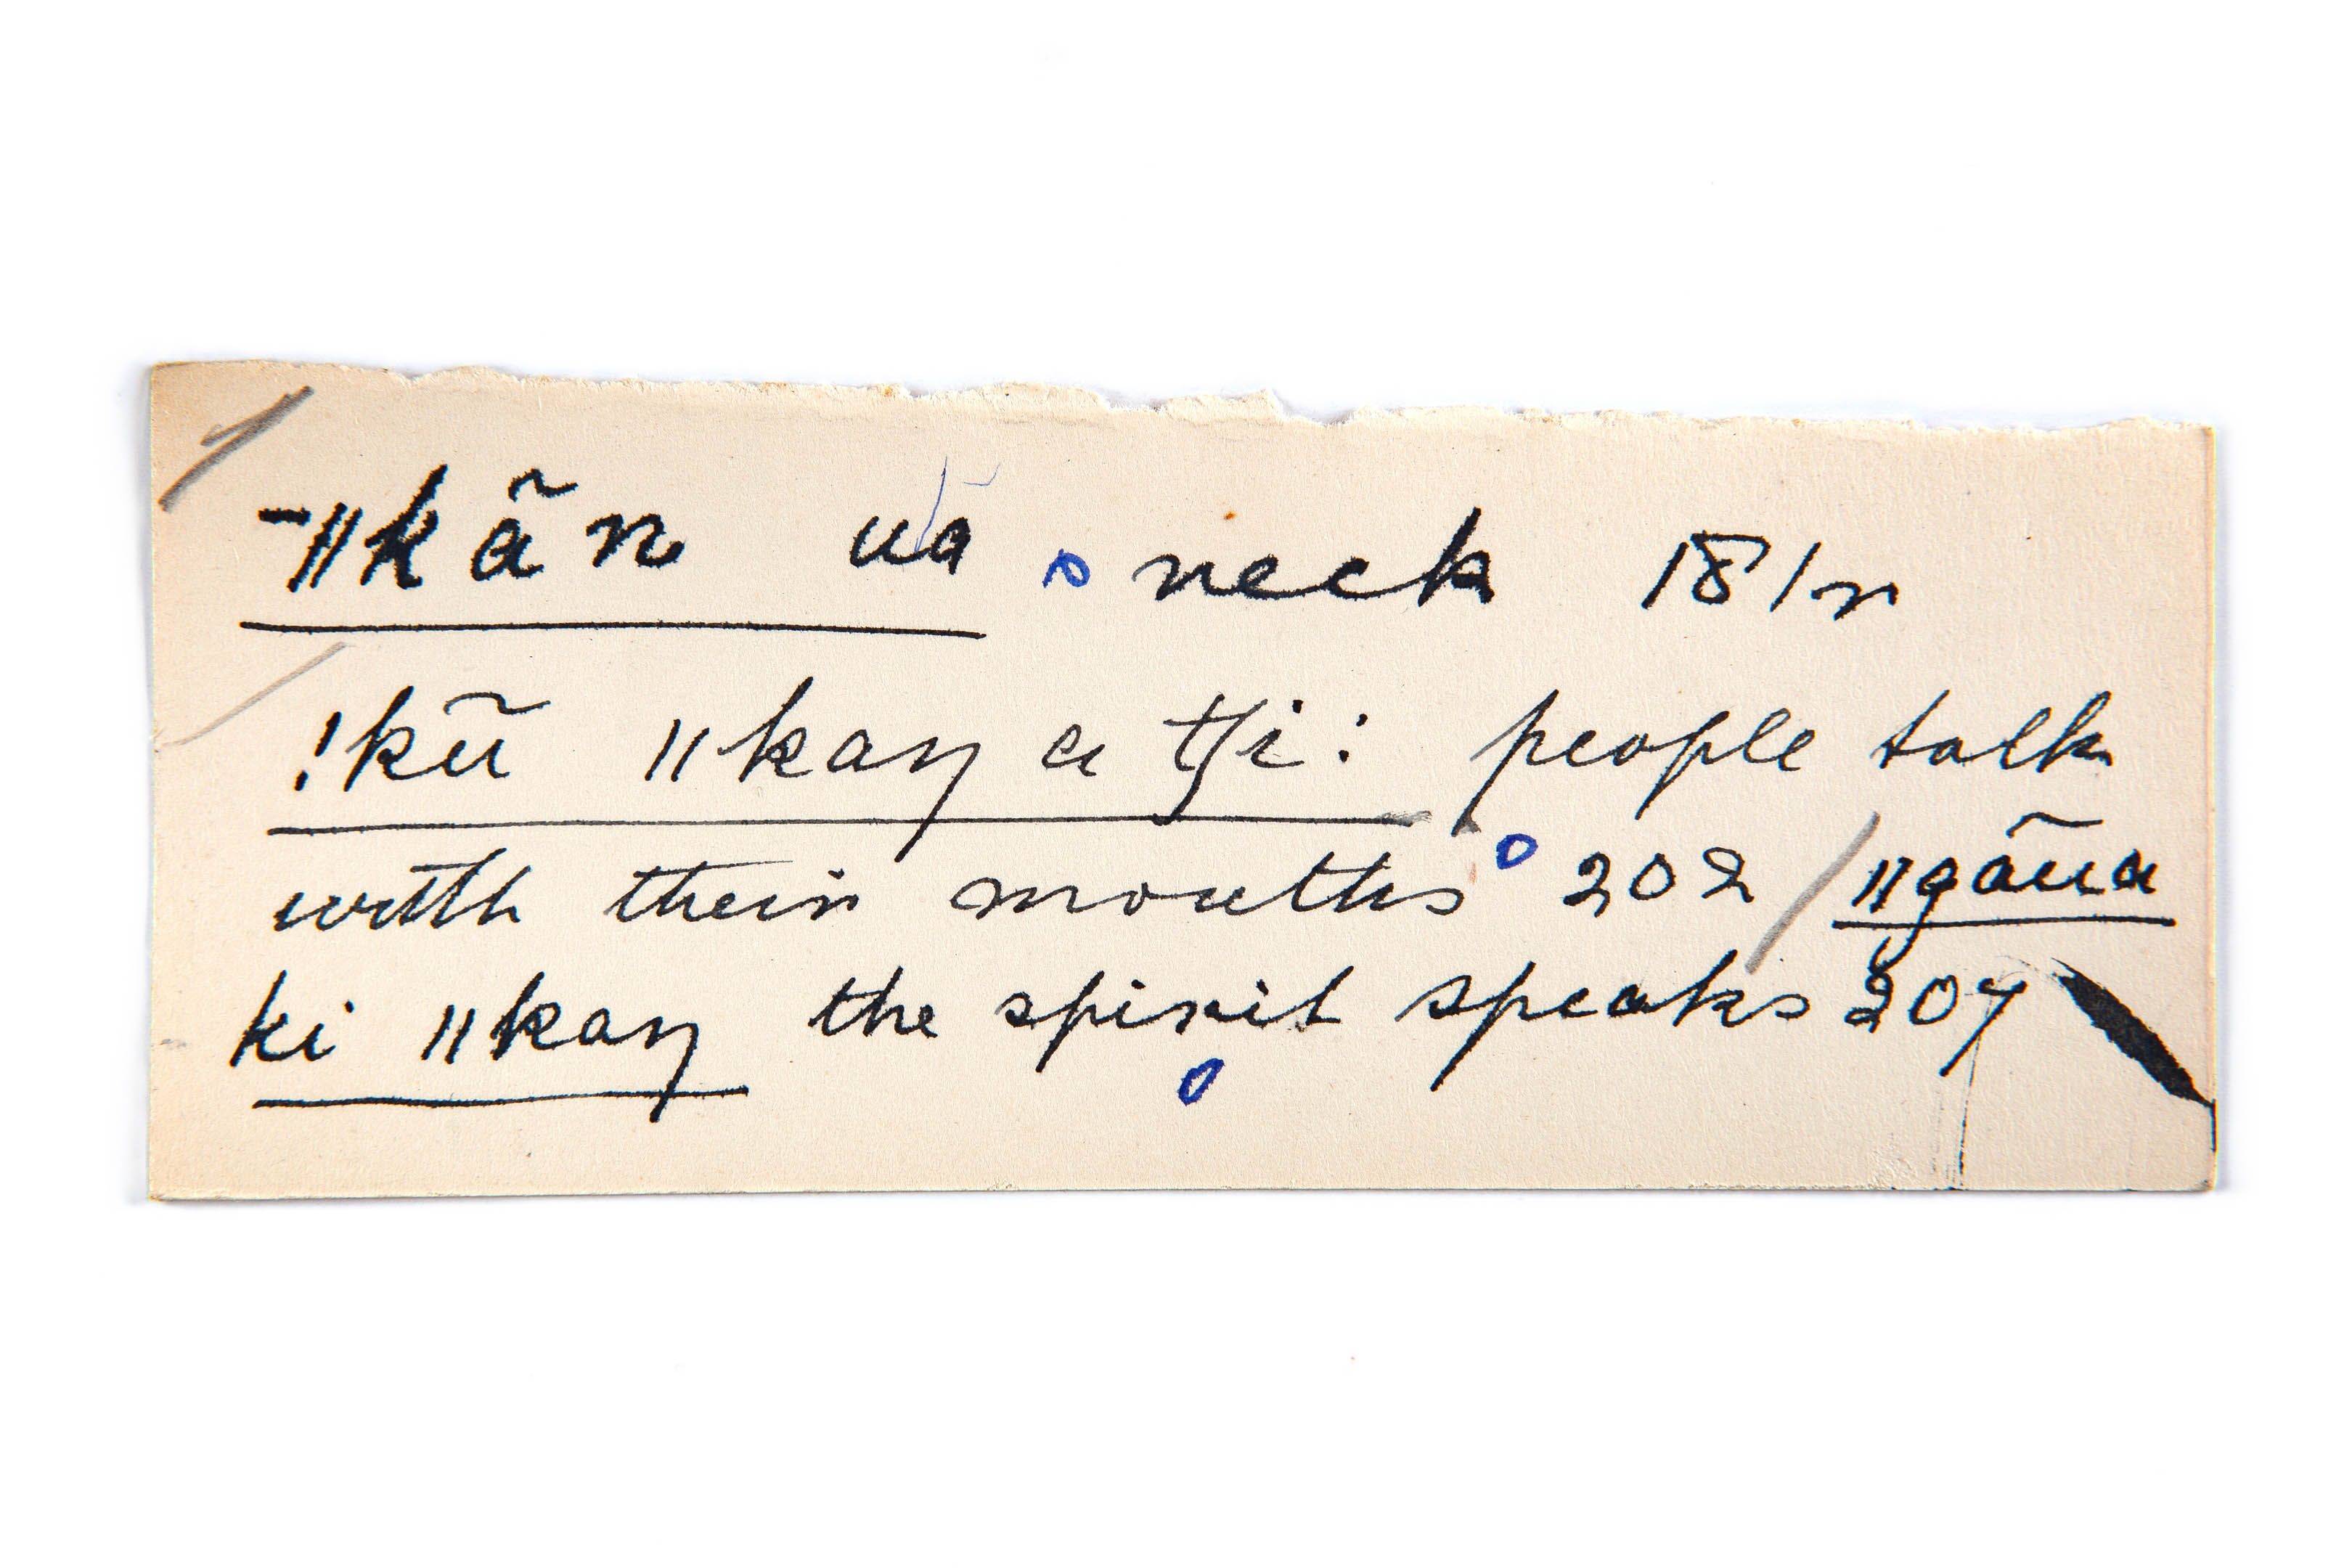 ‾ǁkãn ua neck 18/r
!kũ ǁkaŋ a tʃi: people talk
with their mouths 202 / ǁgãũa
ki ǁkaŋ the spirit speaks 207